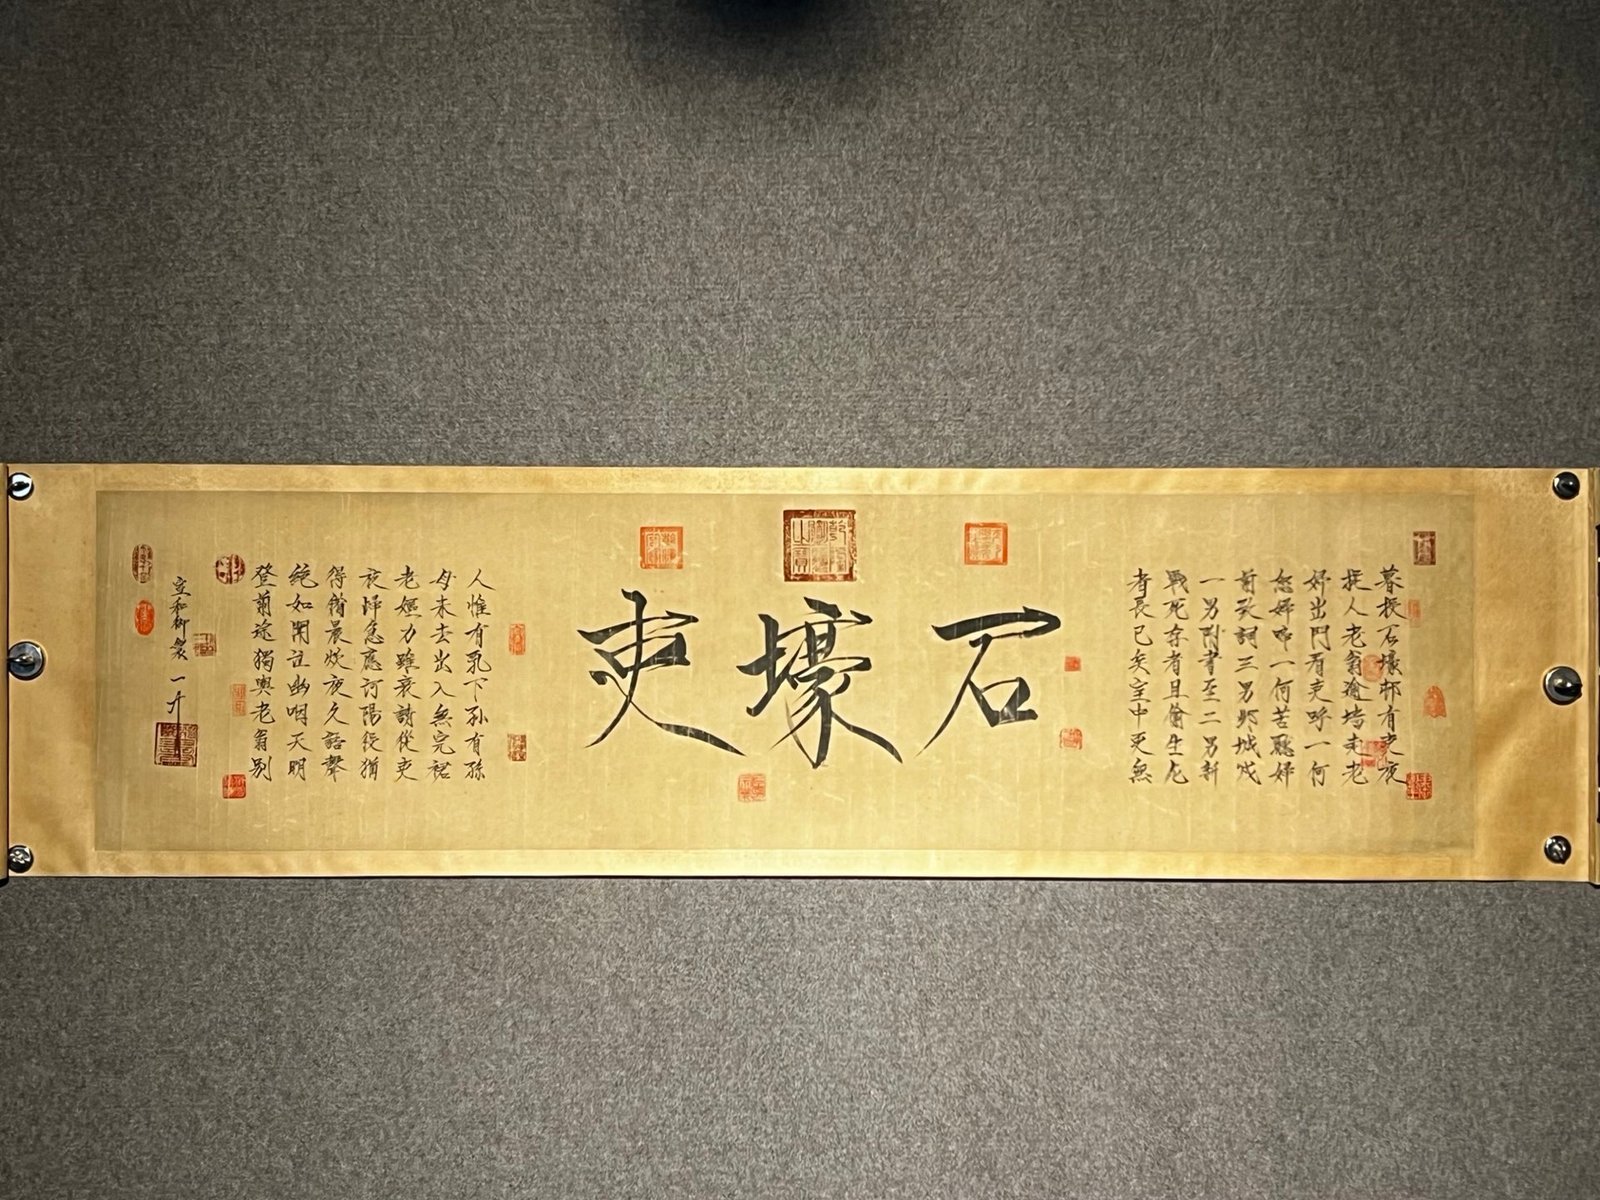 暮投石壕邨有吏夜
捉人老翁逾墻走老
婦出門看吏呼一何
怒婦啼一何苦聽婦
前致詞三男鄴城戍
一男附書至二男新
戰死存者且偷生死
者長已矣室中更無
石壕吏
人惟有乳下孫有孫
母未去出入無完裙
老嫗力雖衰請從吏
夜歸急應河陽役猶
得備晨炊夜久語聲
絕如聞泣幽咽天明
登前途獨與老翁別
宣和御製